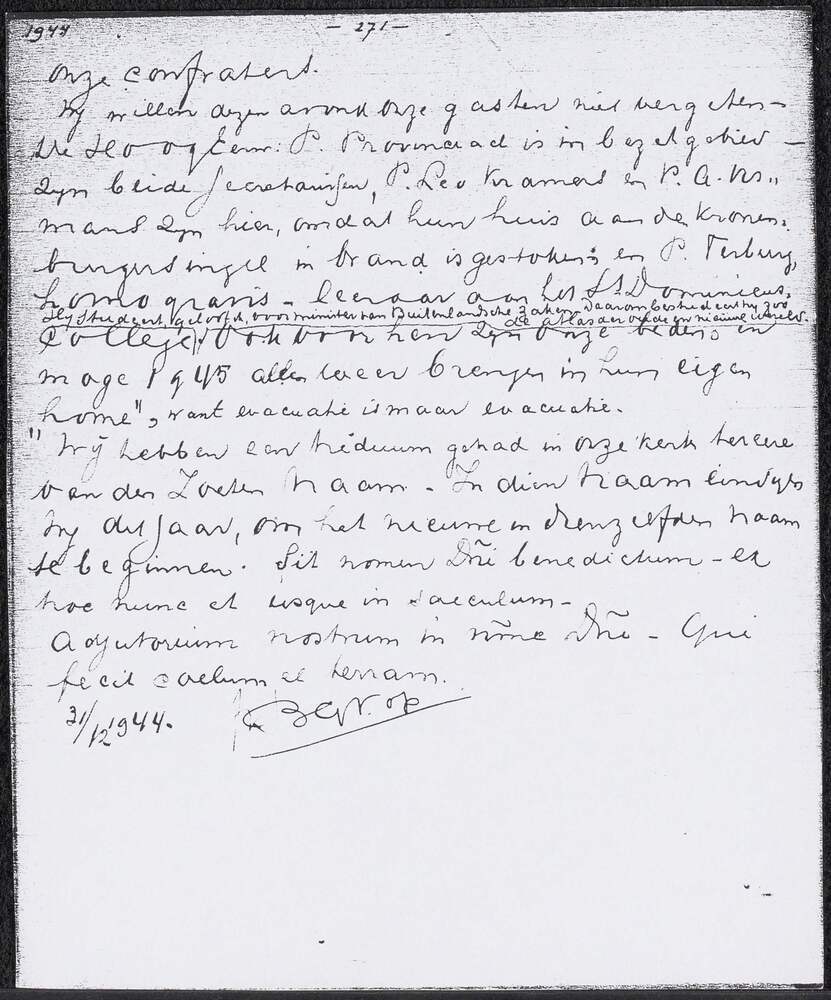 1944
- 271 -
onze confraters.
Wij willen dezen avond onze gasten niet vergeten -
De Hoog Eerw: P. Provinciaal is in bezet gebied -
Zijn beide secretarissen, P. Leo Kramers en P. A.
mans zijn hier, omdat hun huis aan de Kronen=
burgersingel in brand is gestoken: en P. Terburg,
homo gravis - leeraar aan het St Dominicus=
Hij studeert, geloof ik, voor minister van Buitenlandsche Zaken. Daarom bestudeert hij zoo
de atlas der oude en nieuwe wereld.
College. Ook voor hen zijn onze beden: en
moge 1945 allen weer brengen in hun eigen
"home", want evacuatie is maar evacuatie.
Wij hebben een triduum gehad in onze kerk ter eere
van den Zoeten Naam - In dien Naam eindigen
wij dit jaar, om het nieuwe in denzelfden Naam
te beginnen. Sit nomen Dñi benedictum - ex
hoc nunc et usque in saeculum -
Adjutorium nostrum in nõme Dñi - Qui
fecit coelum et terram.
31/12 1944.